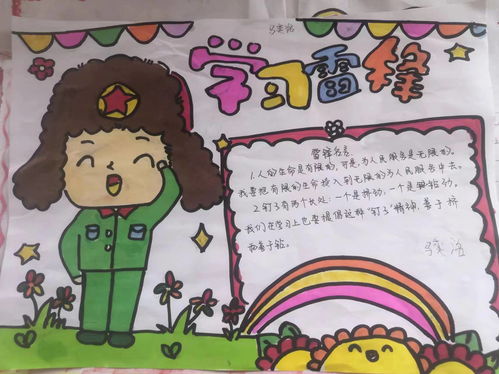 学习雷锋
雷锋名言
1.人的生命是有限的,可是,为人民服务是无限的,
我要把有限的生命投入到无限的为人民服务中去。
2.钉子有两个长处:一个是挤劲,一个是钻劲,
我们在学习上也要提倡这种"钉子"精神,善于挤
和善于钻。